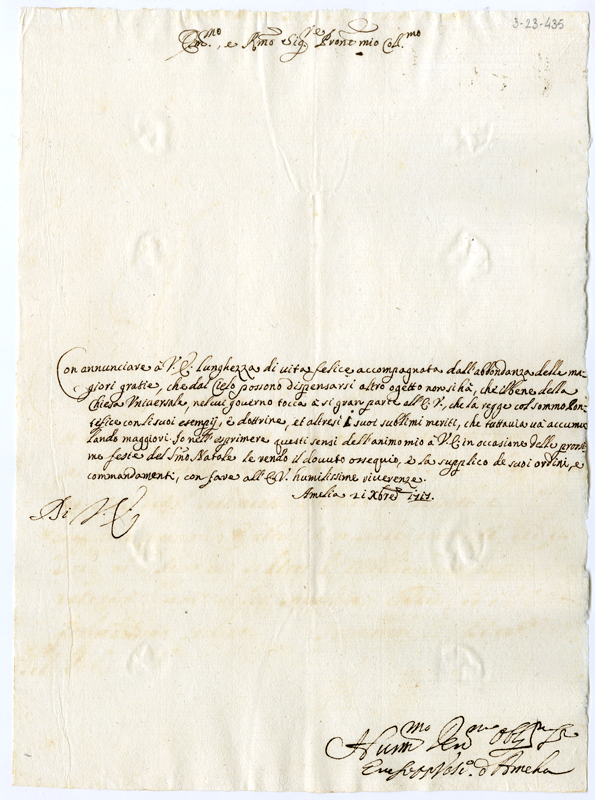 3-23-435
Em.mo, e Rmo Sig.re Prone mio Col.mo
Con annunciare à V. E. lunghezza di vita felice accompagnata dall'abbondanza delle ma
giori gratie, che dal Cielo possono dispensarsi altro ogetto non si hà, che il bene della
Chiesa Universale, nel cui governo tocca à si gran parte all'E. V., che la regge col sommo Pon
tefice con li suoi esempij, e dottrine, et altresi i suoi sublimi meriti, che tuttavia và accumu
lando maggiori. Io nell'esprimere questi sensi dell'animo mio à V. E. in occasione delle prossi
me feste del Smo Natale le rendo il dovuto ossequio, e la supplico de suoi ordini, e
commandamenti, con fare all'E. V. humilissime riverenze.
Amelia 21 Xbre 1717.
Di V. E.
Humil.mo Dev.mo Obl.
Vesc.o d'Amelia